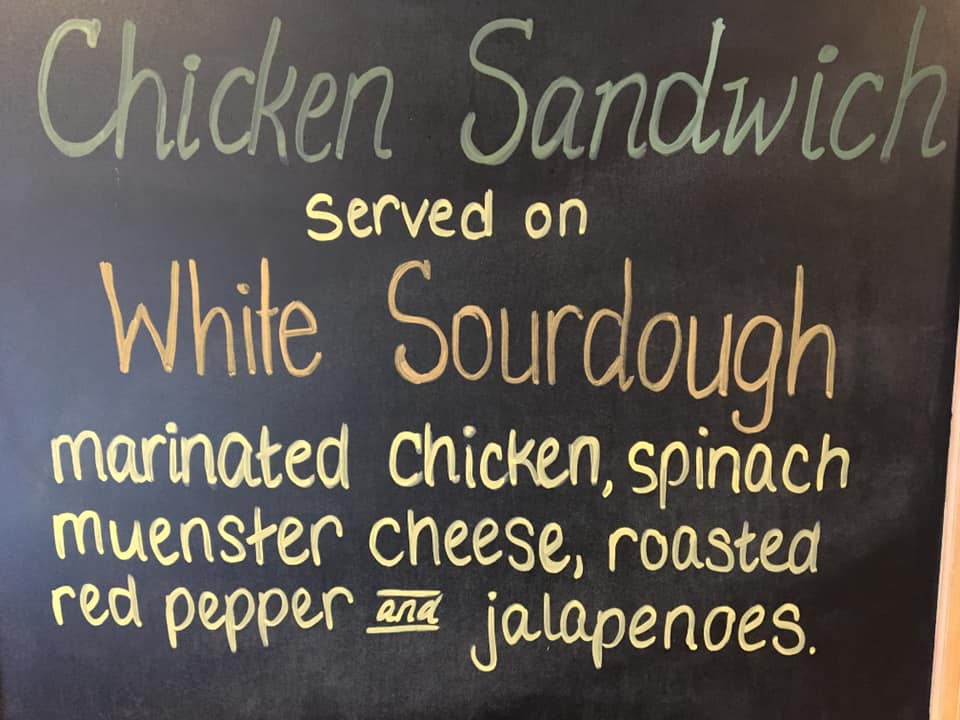 Chicken Sandwich
served on
White Sourdough
marinated chicken, spinach
muenster cheese, roasted
red pepper and jalapenoes.